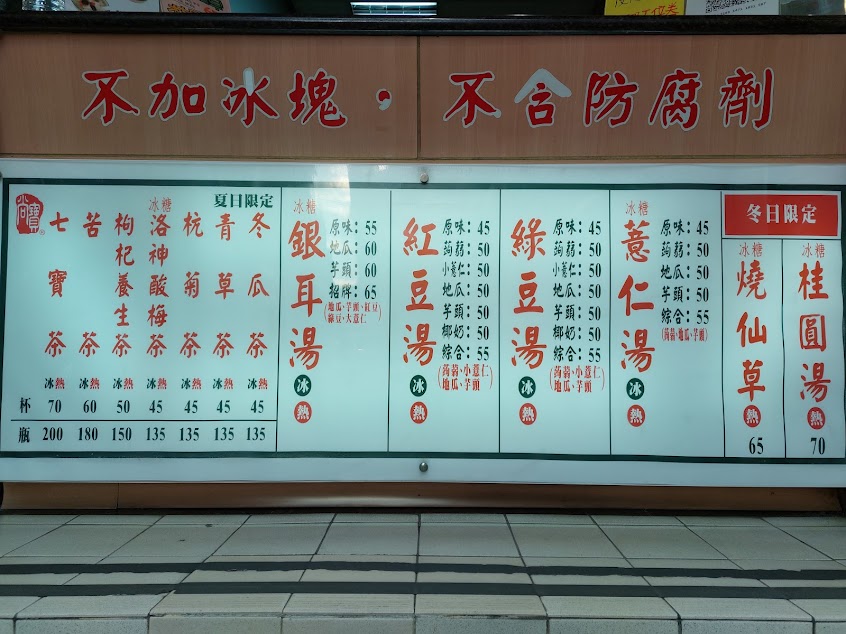 不加冰塊，不含防腐劑
尚寶
夏日限定
七寶茶
苦茶
枸杞養生茶
冰糖
洛神酸梅茶
杭菊茶
青草茶
冬瓜茶
冰熱 冰熱 冰熱 冰熱 冰熱 冰熱 冰熱
杯 70 60 50 45 45 45 45
瓶 200 180 150 135 135 135 135
冰糖
銀耳湯
冰
熱
原味：55
地瓜：60
芋頭：60
招牌：65
(地瓜、芋頭、紅豆
綠豆、大薏仁)
紅豆湯
冰
熱
原味：45
蒟蒻：50
小薏仁：50
地瓜：50
芋頭：50
椰奶：50
綜合：55
(蒟蒻、小薏仁
地瓜、芋頭)
綠豆湯
冰
熱
原味：45
蒟蒻：50
小薏仁：50
地瓜：50
芋頭：50
椰奶：50
綜合：55
(蒟蒻、小薏仁
地瓜、芋頭)
冰糖
薏仁湯
冰
熱
原味：45
蒟蒻：50
地瓜：50
芋頭：50
綜合：55
(蒟蒻、地瓜、芋頭)
冬日限定
冰糖
燒仙草
熱
65
冰糖
桂圓湯
熱
70